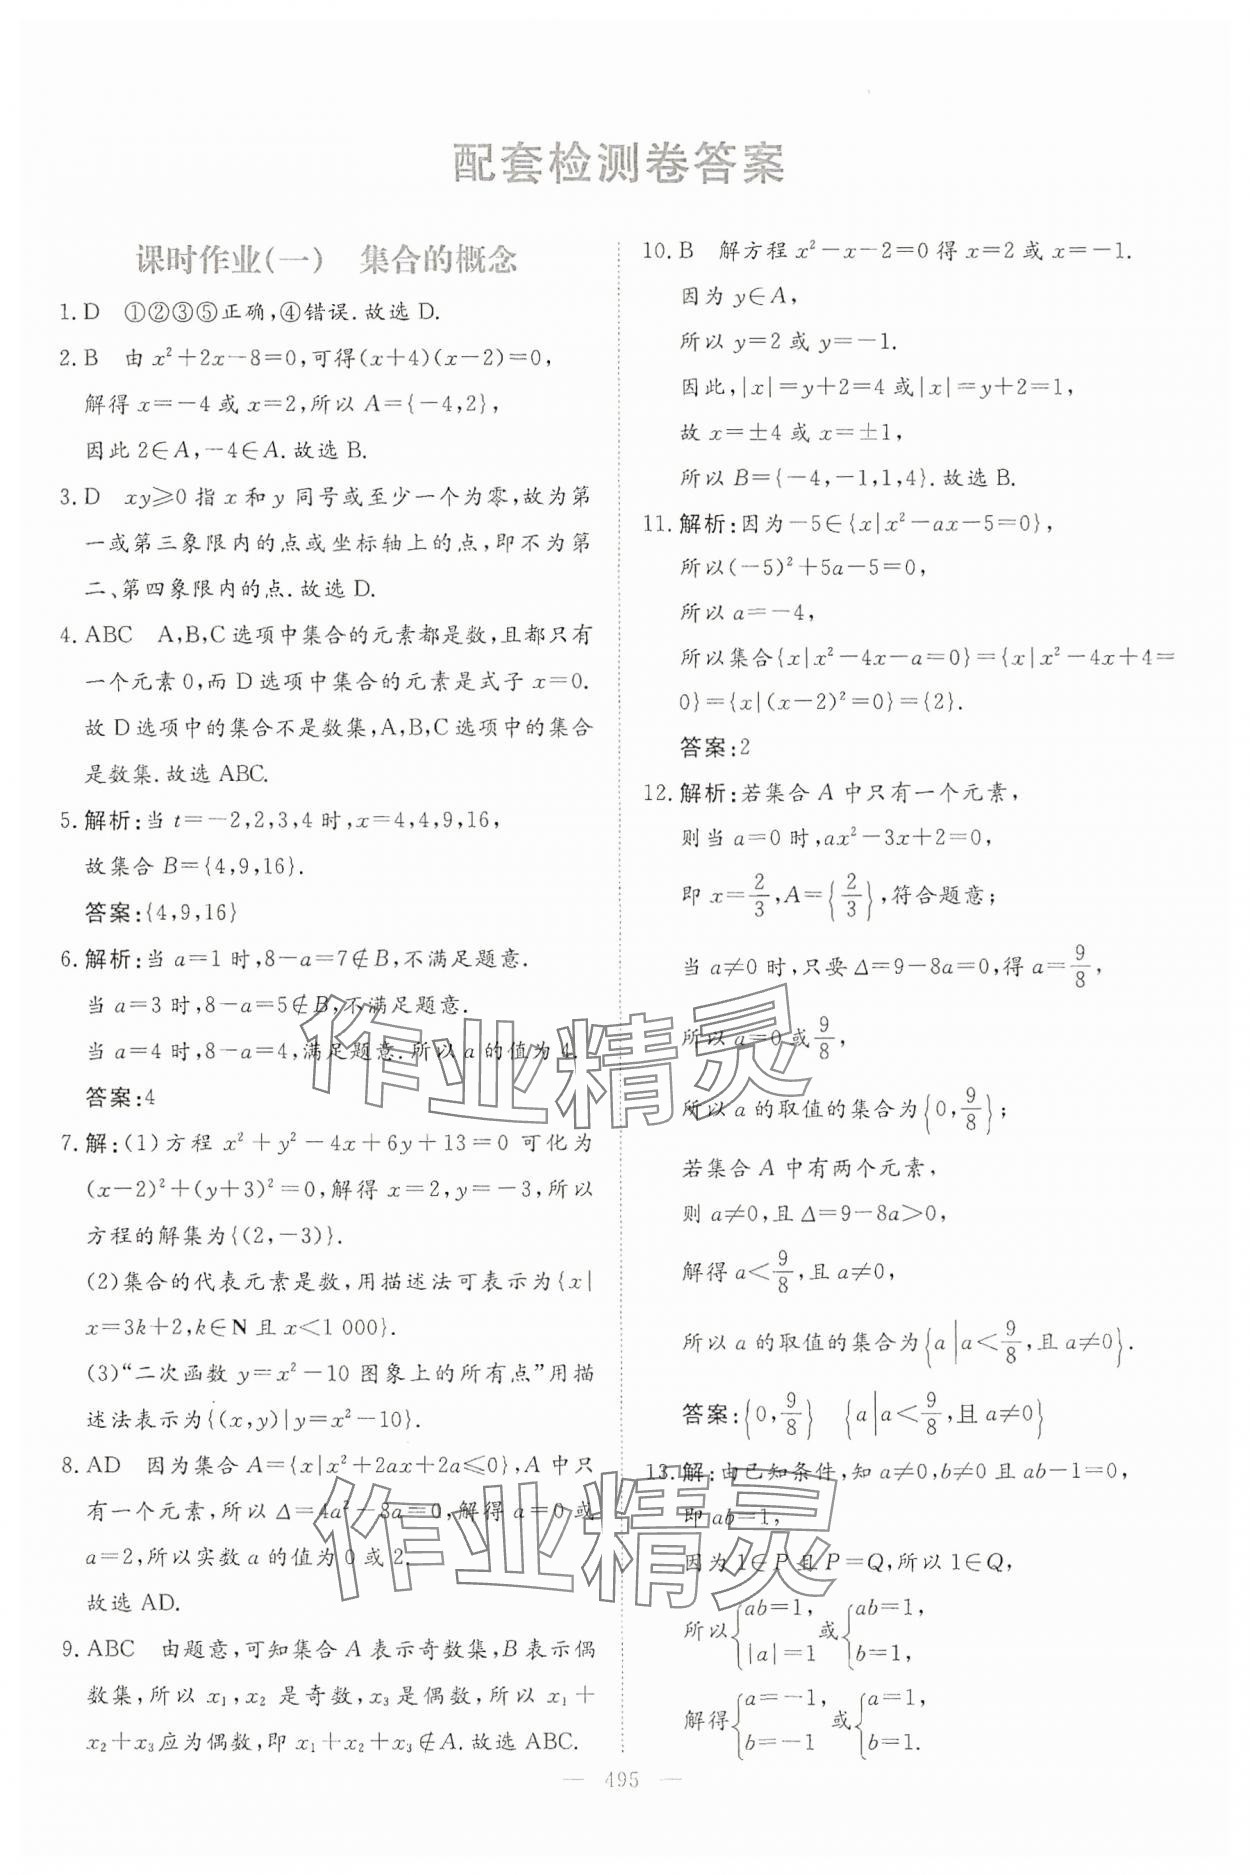 配套检测卷答案
课时作业(一) 集合的概念
1. D ①②③⑤正确,④错误.故选 D.
2. B 由 x²+2x-8=0,可得(x+4)(x-2)=0,
解得 x=-4 或 x=2,所以 A={-4,2},
因此 2∈A,-4∈A.故选 B.
3. D xy⩾0 指 x 和 y 同号或至少一个为零,故为第
一或第三象限内的点或坐标轴上的点,即不为第
二、第四象限内的点.故选 D.
4. ABC A,B,C 选项中集合的元素都是数,且都只有
一个元素 0,而 D 选项中集合的元素是式子 x=0.
故 D 选项中的集合不是数集,A,B,C 选项中的集合
是数集.故选 ABC.
5. 解析:当 t=-2,2,3,4 时,x=4,4,9,16,
故集合 B={4,9,16}.
答案:{4,9,16}
6. 解析:当 a=1 时,8-a=7∉B,不满足题意.
当 a=3 时,8-a=5∉B,不满足题意.
当 a=4 时,8-a=4,满足题意.所以 a 的值为 4.
答案:4
7. 解:(1)方程 x²+y²-4x+6y+13=0 可化为
(x-2)²+(y+3)²=0,解得 x=2,y=-3,所以
方程的解集为{(2,-3)}.
(2)集合的代表元素是数,用描述法可表示为{x|
x=3k+2,k∈N 且 x<1 000}.
(3)“二次函数 y=x²-10 图象上的所有点”用描
述法表示为{(x,y)|y=x²-10}.
8. AD 因为集合 A={x|x²+2ax+2a⩽0},A 中只
有一个元素,所以 Δ=4a²-8a=0,解得 a=0 或
a=2,所以实数 a 的值为 0 或 2.
故选 AD.
9. ABC 由题意,可知集合 A 表示奇数集,B 表示偶
数集,所以 x₁,x₂ 是奇数,x₃ 是偶数,所以 x₁+
x₂+x₃ 应为偶数,即 x₁+x₂+x₃∉A.故选 ABC.
10. B 解方程 x²-x-2=0 得 x=2 或 x=-1.
因为 y∈A,
所以 y=2 或 y=-1.
因此,|x|=y+2=4 或|x|=y+2=1,
故 x=±4 或 x=±1,
所以 B={-4,-1,1,4}.故选 B.
11. 解析:因为-5∈{x|x²-ax-5=0},
所以(-5)²+5a-5=0,
所以 a=-4,
所以集合{x|x²-4x-a=0}={x|x²-4x+4=
0}={x|(x-2)²=0}={2}.
答案:2
12. 解析:若集合 A 中只有一个元素,
则当 a=0 时,ax²-3x+2=0,
即 x=2/3,A={2/3},符合题意;
当 a≠0 时,只要 Δ=9-8a=0,得 a=9/8,
所以 a=0 或 9/8,
所以 a 的取值的集合为{0,9/8};
若集合 A 中有两个元素,
则 a≠0,且 Δ=9-8a>0,
解得 a<9/8,且 a≠0,
所以 a 的取值的集合为{a|a<9/8,且 a≠0}.
答案:{0,9/8} {a|a<9/8,且 a≠0}
13. 解:由已知条件,知 a≠0,b≠0 且 ab-1=0,
即 ab=1,
因为 1∈P 且 P=Q,所以 1∈Q,
所以{ab=1, |a|=1 或{ab=1, b=1,
解得{a=-1, b=-1 或{a=1, b=1.
— 495 —
作业精灵
作业精灵